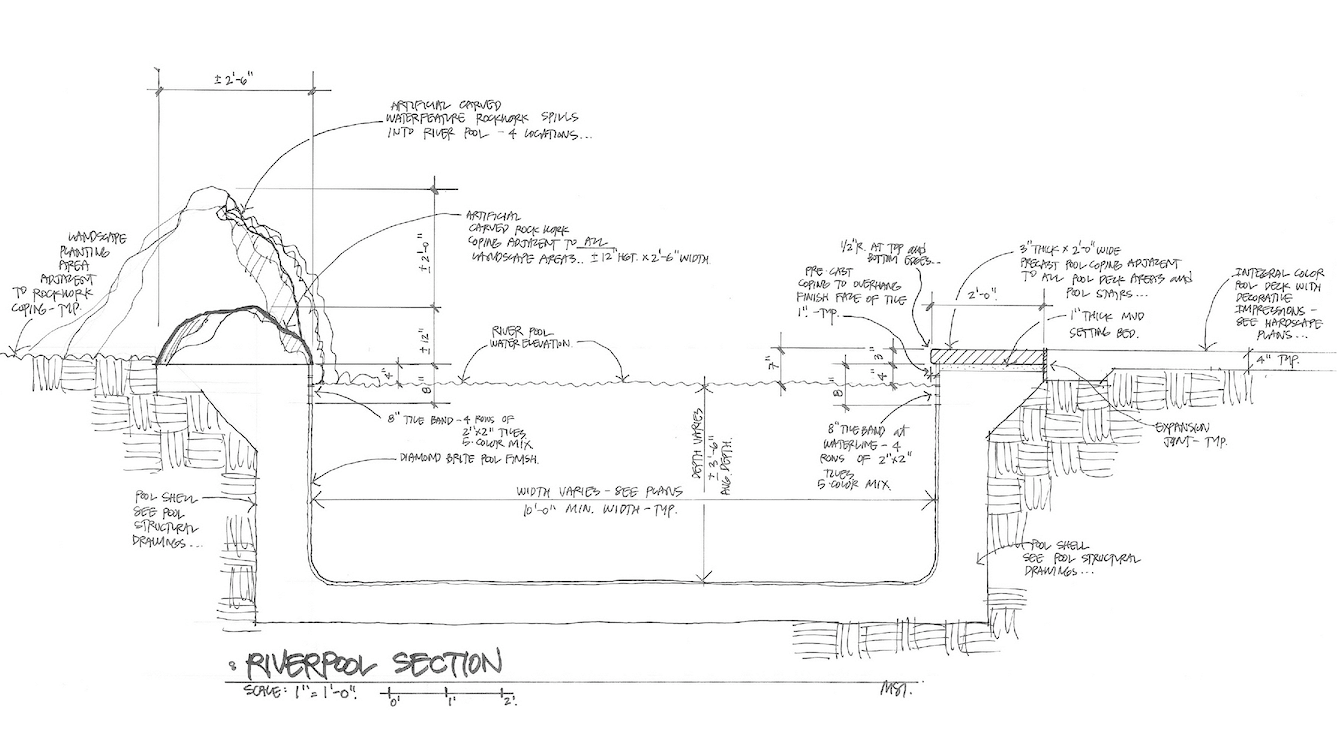 ± 2'-6"
ARTIFICIAL CARVED
WATERFEATURE ROCKWORK SPILLS
INTO RIVER POOL - 4 LOCATIONS...
LANDSCAPE
PLANTING
AREA
ADJACENT
TO ROCKWORK
COPING - TYP.
ARTIFICIAL
CARVED ROCK WORK
COPING ADJACENT TO ALL
LANDSCAPE AREAS.. ±12" HGT. x 2'-6" WIDTH
± 2'-0"
± 12"
4"
8"
RIVER POOL
WATER ELEVATION.
1/2"R. AT TOP and
BOTTOM EDGES...
PRE-CAST
COPING TO OVERHANG
FINISH FACE OF TILE
1". - TYP.
3" THICK x 2'-0" WIDE
PRECAST POOL COPING ADJACENT
TO ALL POOL DECK AREAS and
POOL STAIRS...
2'-0".
1" THICK MUD
SETTING BED.
INTEGRAL COLOR
POOL DECK WITH
DECORATIVE
IMPRESSIONS -
SEE HARDSCAPE
PLANS...
4" TYP.
7"
3"
4"
8"
8" TILE BAND - 4 ROWS OF
2"x2" TILES
5-COLOR MIX
DIAMOND BRITE POOL FINISH.
DEPTH VARIES
± 3'-6"
AVG. DEPTH.
8" TILE BAND at
WATERLINE - 4
ROWS OF 2"x2"
TILES
5-COLOR MIX.
EXPANSION
JOINT - TYP.
WIDTH VARIES - SEE PLANS
10'-0" MIN. WIDTH - TYP.
POOL SHELL
SEE POOL
STRUCTURAL
DRAWINGS...
POOL SHELL
SEE POOL STRUCTURAL
DRAWINGS...
8 RIVERPOOL SECTION
SCALE: 1" = 1'-0".
0' 1' 2'.